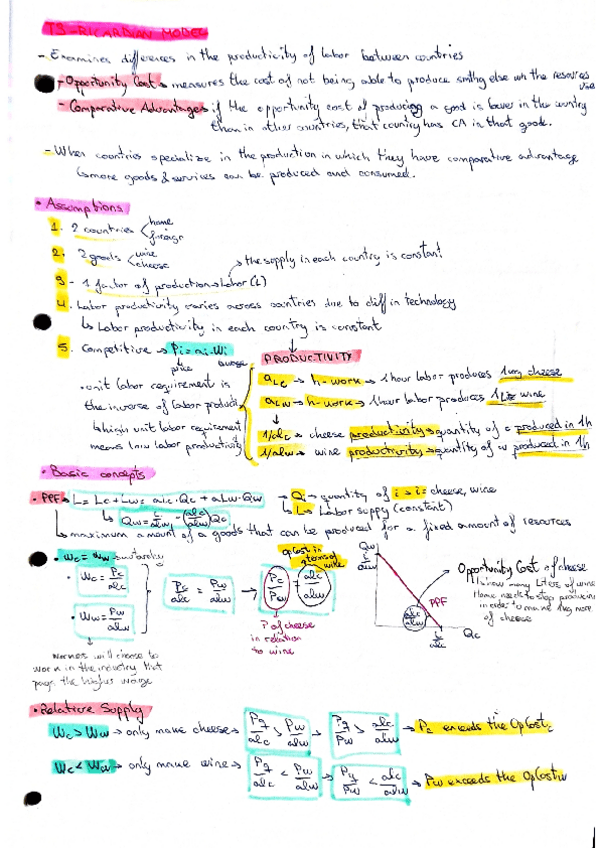 T3-RICARDIAN MODEL
- Examines differences in the productivity of labor between countries
- Opportunity Cost → measures the cost of not being able to produce smthg else wh the resources used
- Comparative Advantages if the opportunity cost of producing a good is lower in the country
than in other countries, that country has CA in that good.
- When countries specialize in the production in which they have comparative advantage
↳ more goods & services can be produced and consumed.
• Assumptions
1. 2 countries < home
foreign
2. 2 goods < wine
cheese
→ the supply in each country is constant
3 - 1 factor of production → Labor (L)
4. Labor productivity varies across countries due to diff in technology
↳ Labor productivity in each country is constant
5. Competitive → Pi = ai · Wi
price
wage
• unit labor requirement is
the inverse of labor product
↳ high unit labor requirement
means low labor productivity
PRODUCTIVITY
aLC → h-work → 1 hour labor produces 1kg cheese
aLW → h-work → 1 hour labor produces 1 Lit wine
1/aLC → cheese productivity → quantity of c produced in 1h
1/aLW → wine productivity → quantity of w produced in 1h
• Basic concepts
• PPF → L = Lc + Lw = aLC · Qc + aLW · Qw
Qw = L/aLW - (aLC/aLW) Qc
→ Qi → quantity of i → i = cheese, wine
↳ L → Labor supply (constant)
↳ maximum amount of a goods that can be produced for a fixed amount of resources
• Wc = Ww
• Wc = Pc/aLC
• Ww = Pw/aLW
Pc/aLC = Pw/aLW → Pc/Pw = aLC/aLW
OpCost in
terms of
wine
P of cheese
in relation
to wine
workers will choose to
work in the industry that
pays the higher wage
Qw
L/aLW
PPF
aLC/aLW
L/aLC
Qc
Opportunity Cost of cheese
↳ how many Liters of wine
Home needs to stop producing
in order to make 1kg more
of cheese
• Relative Supply
Wc > Ww → only make cheese → Pc/aLC > Pw/aLW → Pc/Pw > aLC/aLW → Pc exceeds the OpCostc
Wc < Ww → only make wine → Pc/aLC < Pw/aLW → Pc/Pw < aLC/aLW → Pw exceeds the OpCostw